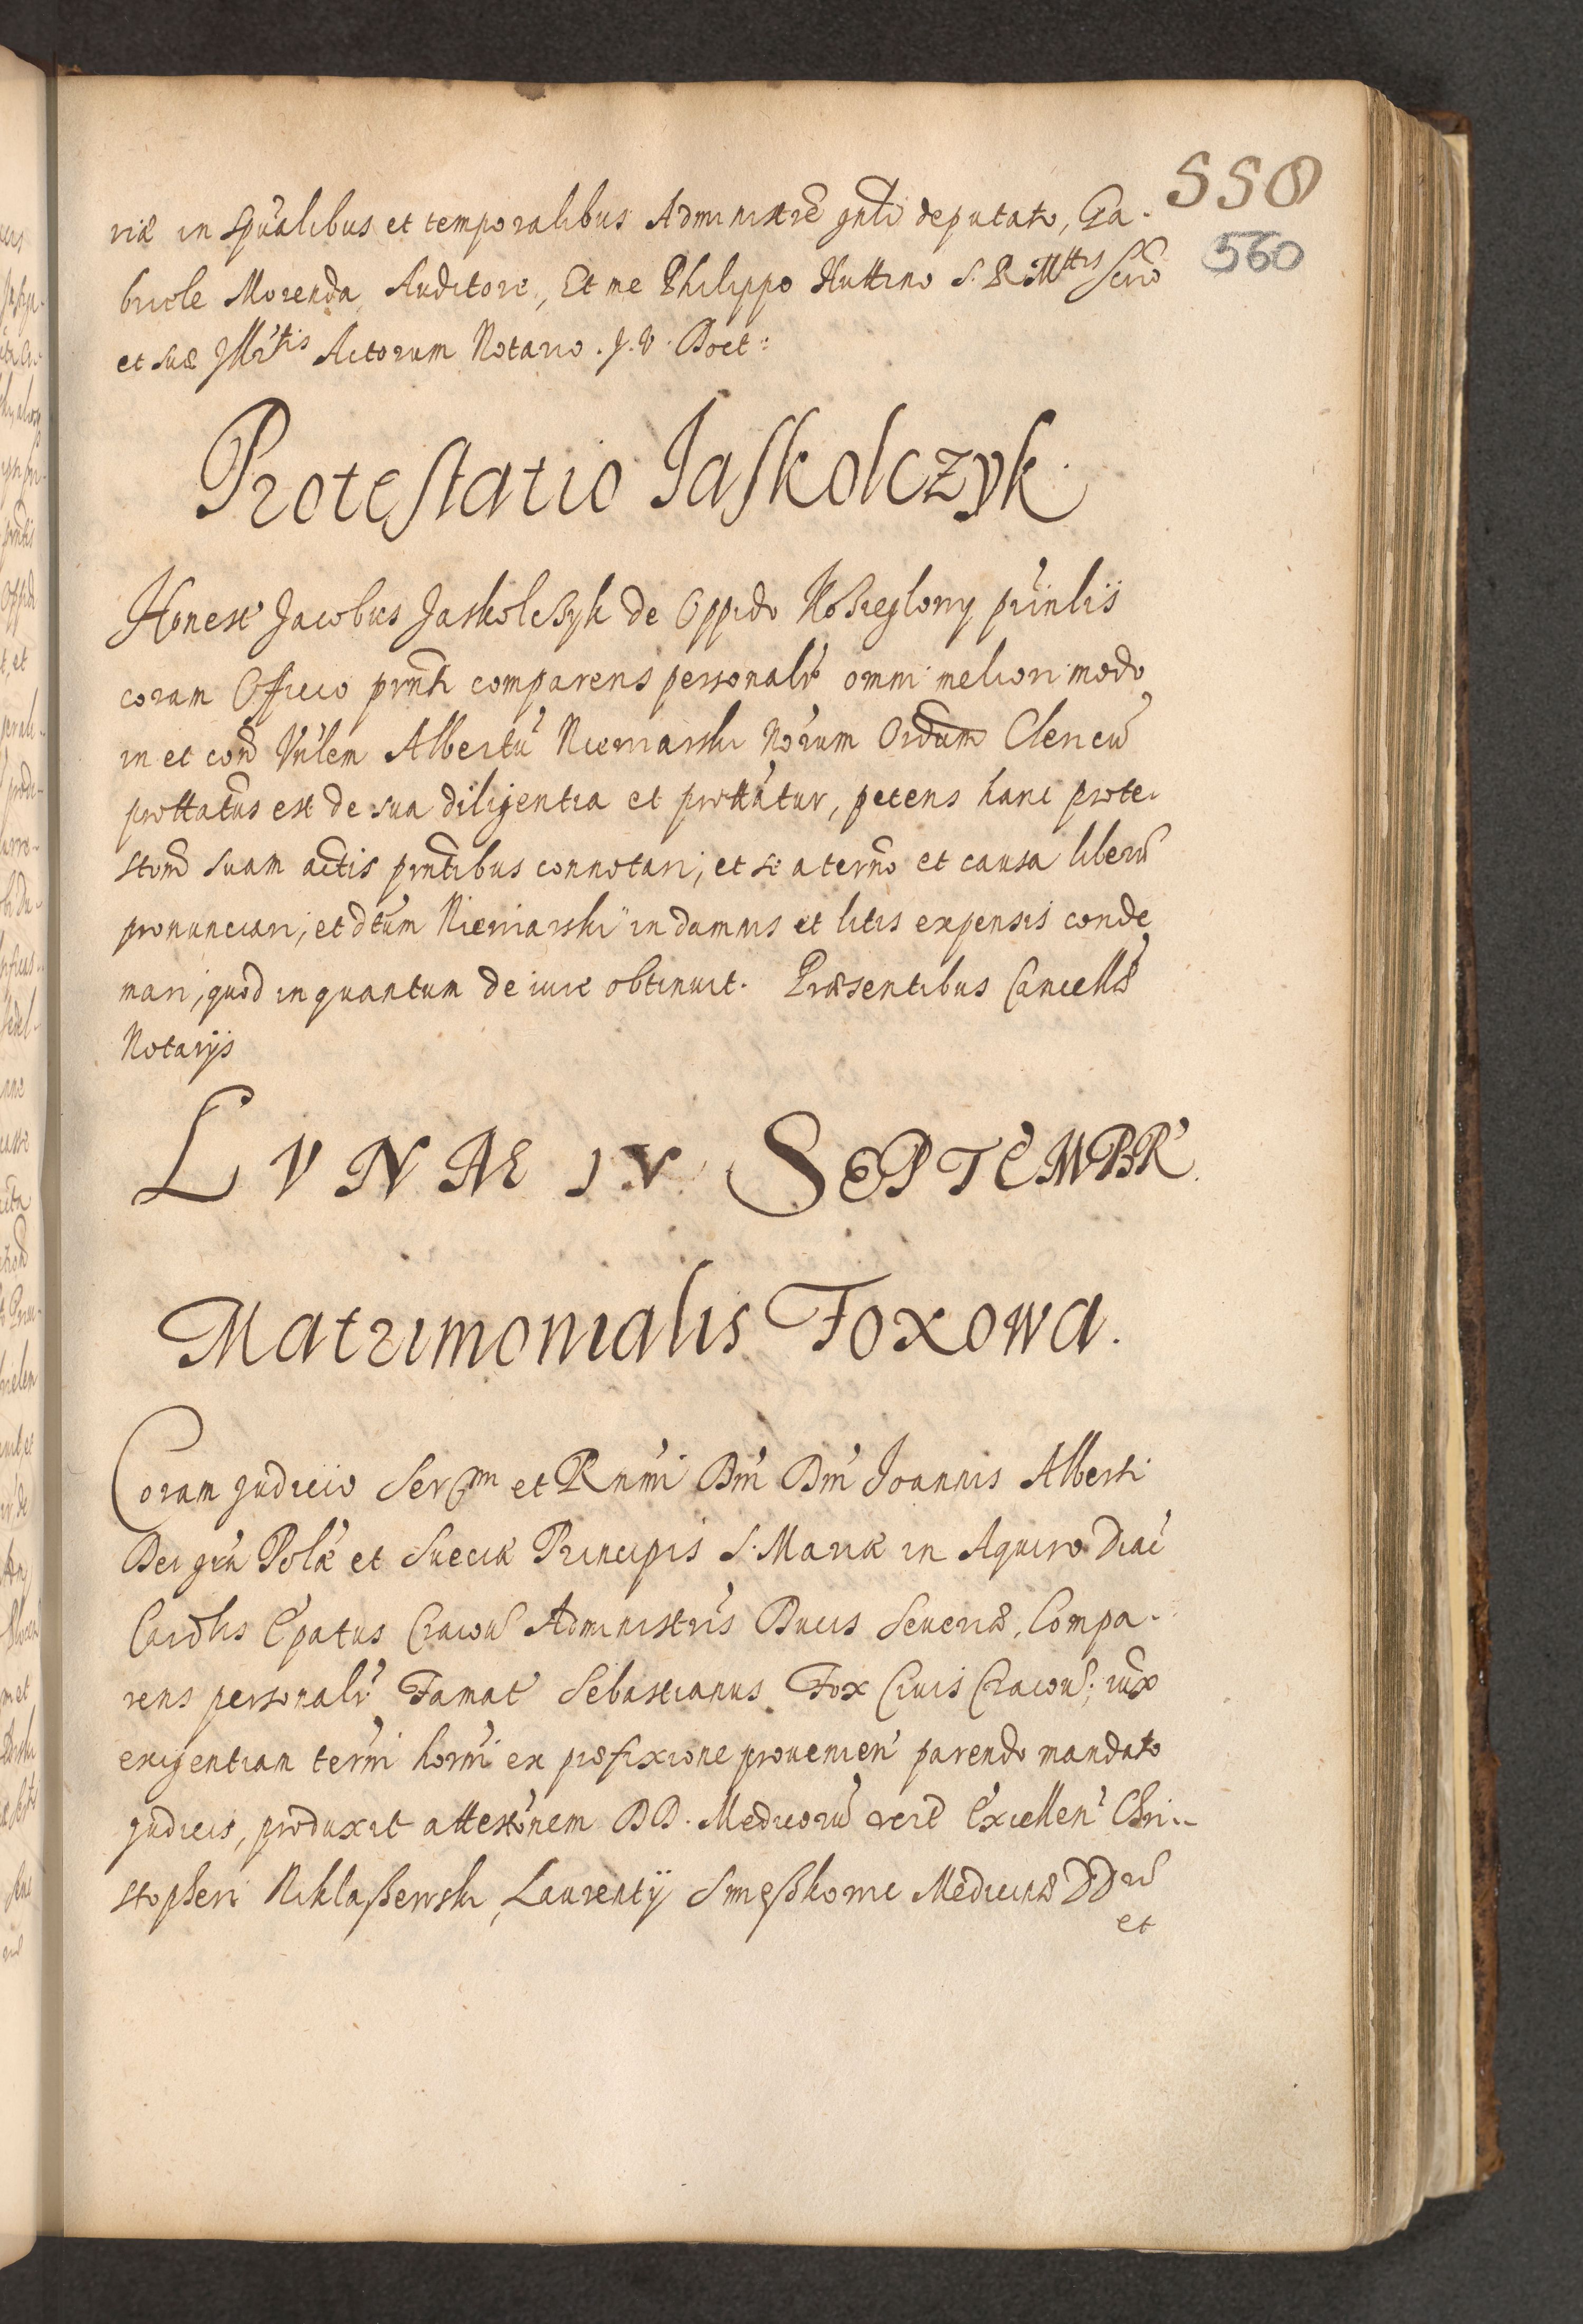 558
560
riæ in Spũalibus et temporalibus Administrẽ gnli deputato, Ga-
briele Morenda Auditore, Et me Philippo Huttino S. R. Mttis Scrio
et suæ Illrtis Actorum Notario. J. V. Doct:
Protestatio Jaskolczyk.
Honest' Jacobus Jaskolczyk de Oppido Kozieglowy prinlis
coram Officio prnti comparens personalr omni meliori modo
in et cont Vnlem Albertũ Niemarski Norum Ordum Clericũ
prottatus est de sua diligentia et prottatur, petens hanc prote-
stonẽ suam actis prntibus connotari, et se a termo et causa liberũ
pronunciari, et dtum Niemarski in damnis et litis expensis conde
mari, quod inquantum de iure obtinuit. Præsentibus Cancellæ
Notarijs
LVNAE IV SEPTEMBR.
Matrimonialis Foxowa.
Coram Judicio Sermi et Rnmi Dni Dni Joannis Alberti
Dei gra Polæ et Sueciæ Principis S. Mariæ in Aquiro Diac
Cardlis Epatus Cracou Administris Ducis Seueriæ, Compa-
rens personalr Famat' Sebastianus Fox Ciuis Cracou; iux
exigentiam termi horni ex præfixione prouenien parendo mandato
Judicis, produxit attestonem DD. Medicorũ vere Excellen Chri-
stopheri Niklaßewski, Laurentij Smeßkowic Medicinæ DDrũ
et